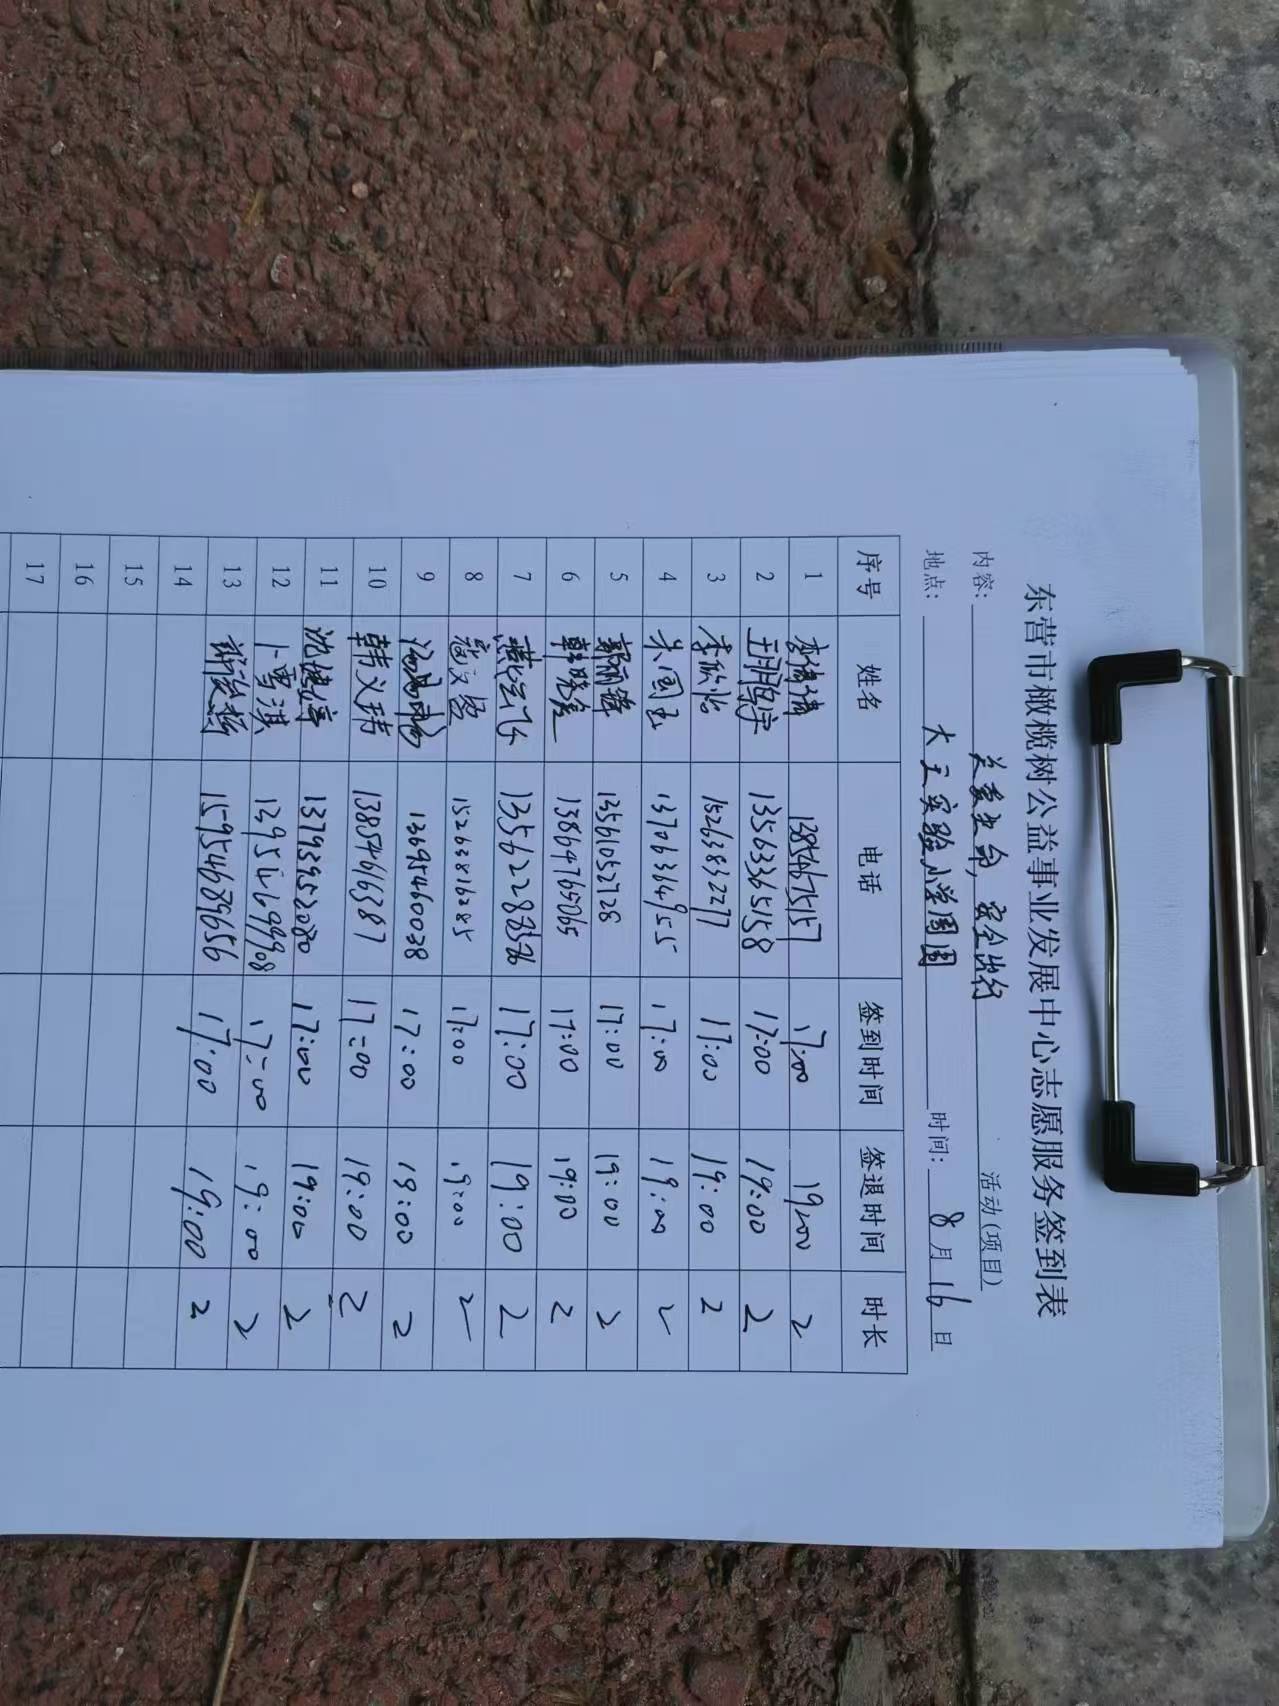 东营市橄榄树公益事业发展中心志愿服务签到表
内容: 关爱生命,安全出行 活动(项目)
地点: 大王实验小学周围 时间: 8月16日
序号 姓名 电话 签到时间 签退时间 时长
1 李倩倩 13854675157 17:00 19:00 2
2 王鹏宇 13563365158 17:00 19:00 2
3 李欣怡 15263832277 17:00 19:00 2
4 朱国玉 13706364955 17:00 19:00 2
5 郭丽鲜 13561052728 17:00 19:00 2
6 韩晓 13864765065 17:00 19:00 2
7 燕云飞 17:00 19:00 2
8 15263816285 17:00 19:00 2
9 13695460028 17:00 19:00 2
10 韩义玮 13854666387 17:00 19:00 2
11 沈 13793952080 17:00 19:00 2
12 卜雪淇 17:00 19:00 2
13 15954689656 17:00 19:00 2
14
15
16
17